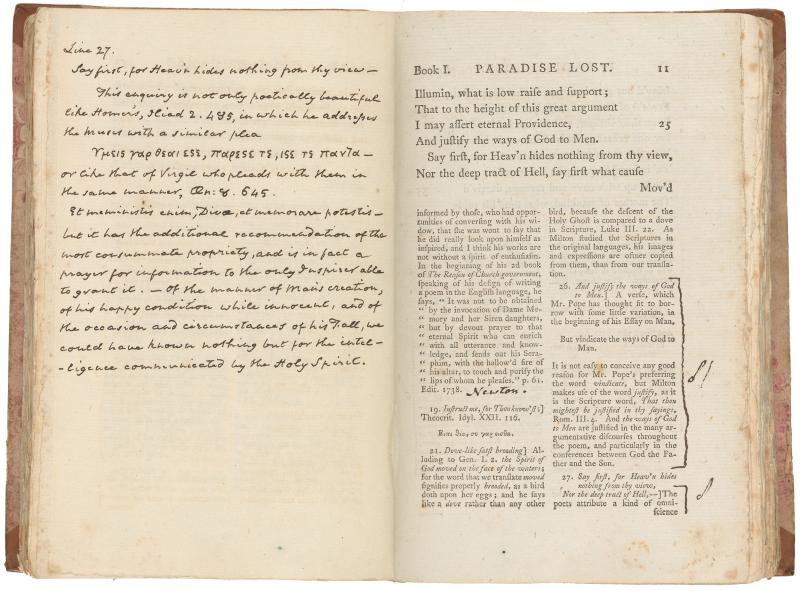 Line 27.
Say first, for Heav'n hides nothing from thy view —
This enquiry is not only poetically beautiful
like Homer's, Iliad 2. 485, in which he addresses
the Muses with a similar plea
Ὑμεις γαρ θεαι εςε, παρεςε τε, ιςε τε παντα —
or like that of Virgil who pleads with them in
the same manner, Æn: 8. 645.
Et meministis enim, Divæ, et memorare potestis —
but it has the additional recommendation of the
most consummate propriety, and is in fact a
prayer for information to the only Inspirer able
to grant it. — Of the manner of Man's creation,
of his happy condition while innocent, and of
the occasion and circumstances of his Fall, we
could have known nothing but for the intel-
-ligence communicated by the Holy Spirit.
Book I. PARADISE LOST. 11
Illumin, what is low raiſe and ſupport;
That to the height of this great argument
I may aſſert eternal Providence, 25
And juſtify the ways of God to Men.
Say firſt, for Heav'n hides nothing from thy view,
Nor the deep tract of Hell, ſay firſt what cauſe
Mov'd
informed by thoſe, who had oppor-
tunities of converſing with his wi-
dow, that ſhe was wont to ſay that
he did really look upon himſelf as
inſpired, and I think his works are
not without a ſpirit of enthuſiaſm.
In the beginning of his 2d book
of The Reaſon of Church government,
ſpeaking of his deſign of writing
a poem in the Engliſh language, he
ſays, " It was not to be obtained
" by the invocation of Dame Me-
" mory and her Siren daughters,
" but by devout prayer to that
" eternal Spirit who can enrich
" with all utterance and know-
" ledge, and ſends out his Sera-
" phim, with the hallow'd fire of
" his altar, to touch and purify the
" lips of whom he pleaſes." p. 61.
Edit. 1738. Newton.
19. Inſtruct me, for Thou know'ſt;]
Theocrit. Idyl. XXII. 116.
Ειπε θεα, συ γαρ οισθα.
21. Dove-like ſatſt brooding] Al-
luding to Gen. I. 2. the Spirit of
God moved on the face of the waters;
for the word that we tranſlate moved
ſignifies properly brooded, as a bird
doth upon her eggs; and he ſays
like a dove rather than any other
bird, becauſe the deſcent of the
Holy Ghoſt is compared to a dove
in Scripture, Luke III. 22. As
Milton ſtudied the Scriptures in
the original languages, his images
and expreſſions are oftner copied
from them, than from our tranſla-
tion.
26. And juſtify the ways of God
to Men.] A verſe, which
Mr. Pope has thought fit to bor-
row with ſome little variation, in
the beginning of his Eſſay on Man,
But vindicate the ways of God to
Man.
It is not eaſy to conceive any good
reaſon for Mr. Pope's preferring
the word vindicate, but Milton
makes uſe of the word juſtify, as it
is the Scripture word, That thou
mighteſt be juſtified in thy ſayings,
Rom. III. 4. And the ways of God
to Men are juſtified in the many ar-
gumentative diſcourſes throughout
the poem, and particularly in the
conferences between God the Fa-
ther and the Son.
27. Say firſt, for Heav'n hides
nothing from thy view,
Nor the deep tract of Hell,—]The
poets attribute a kind of omni-
ſcience